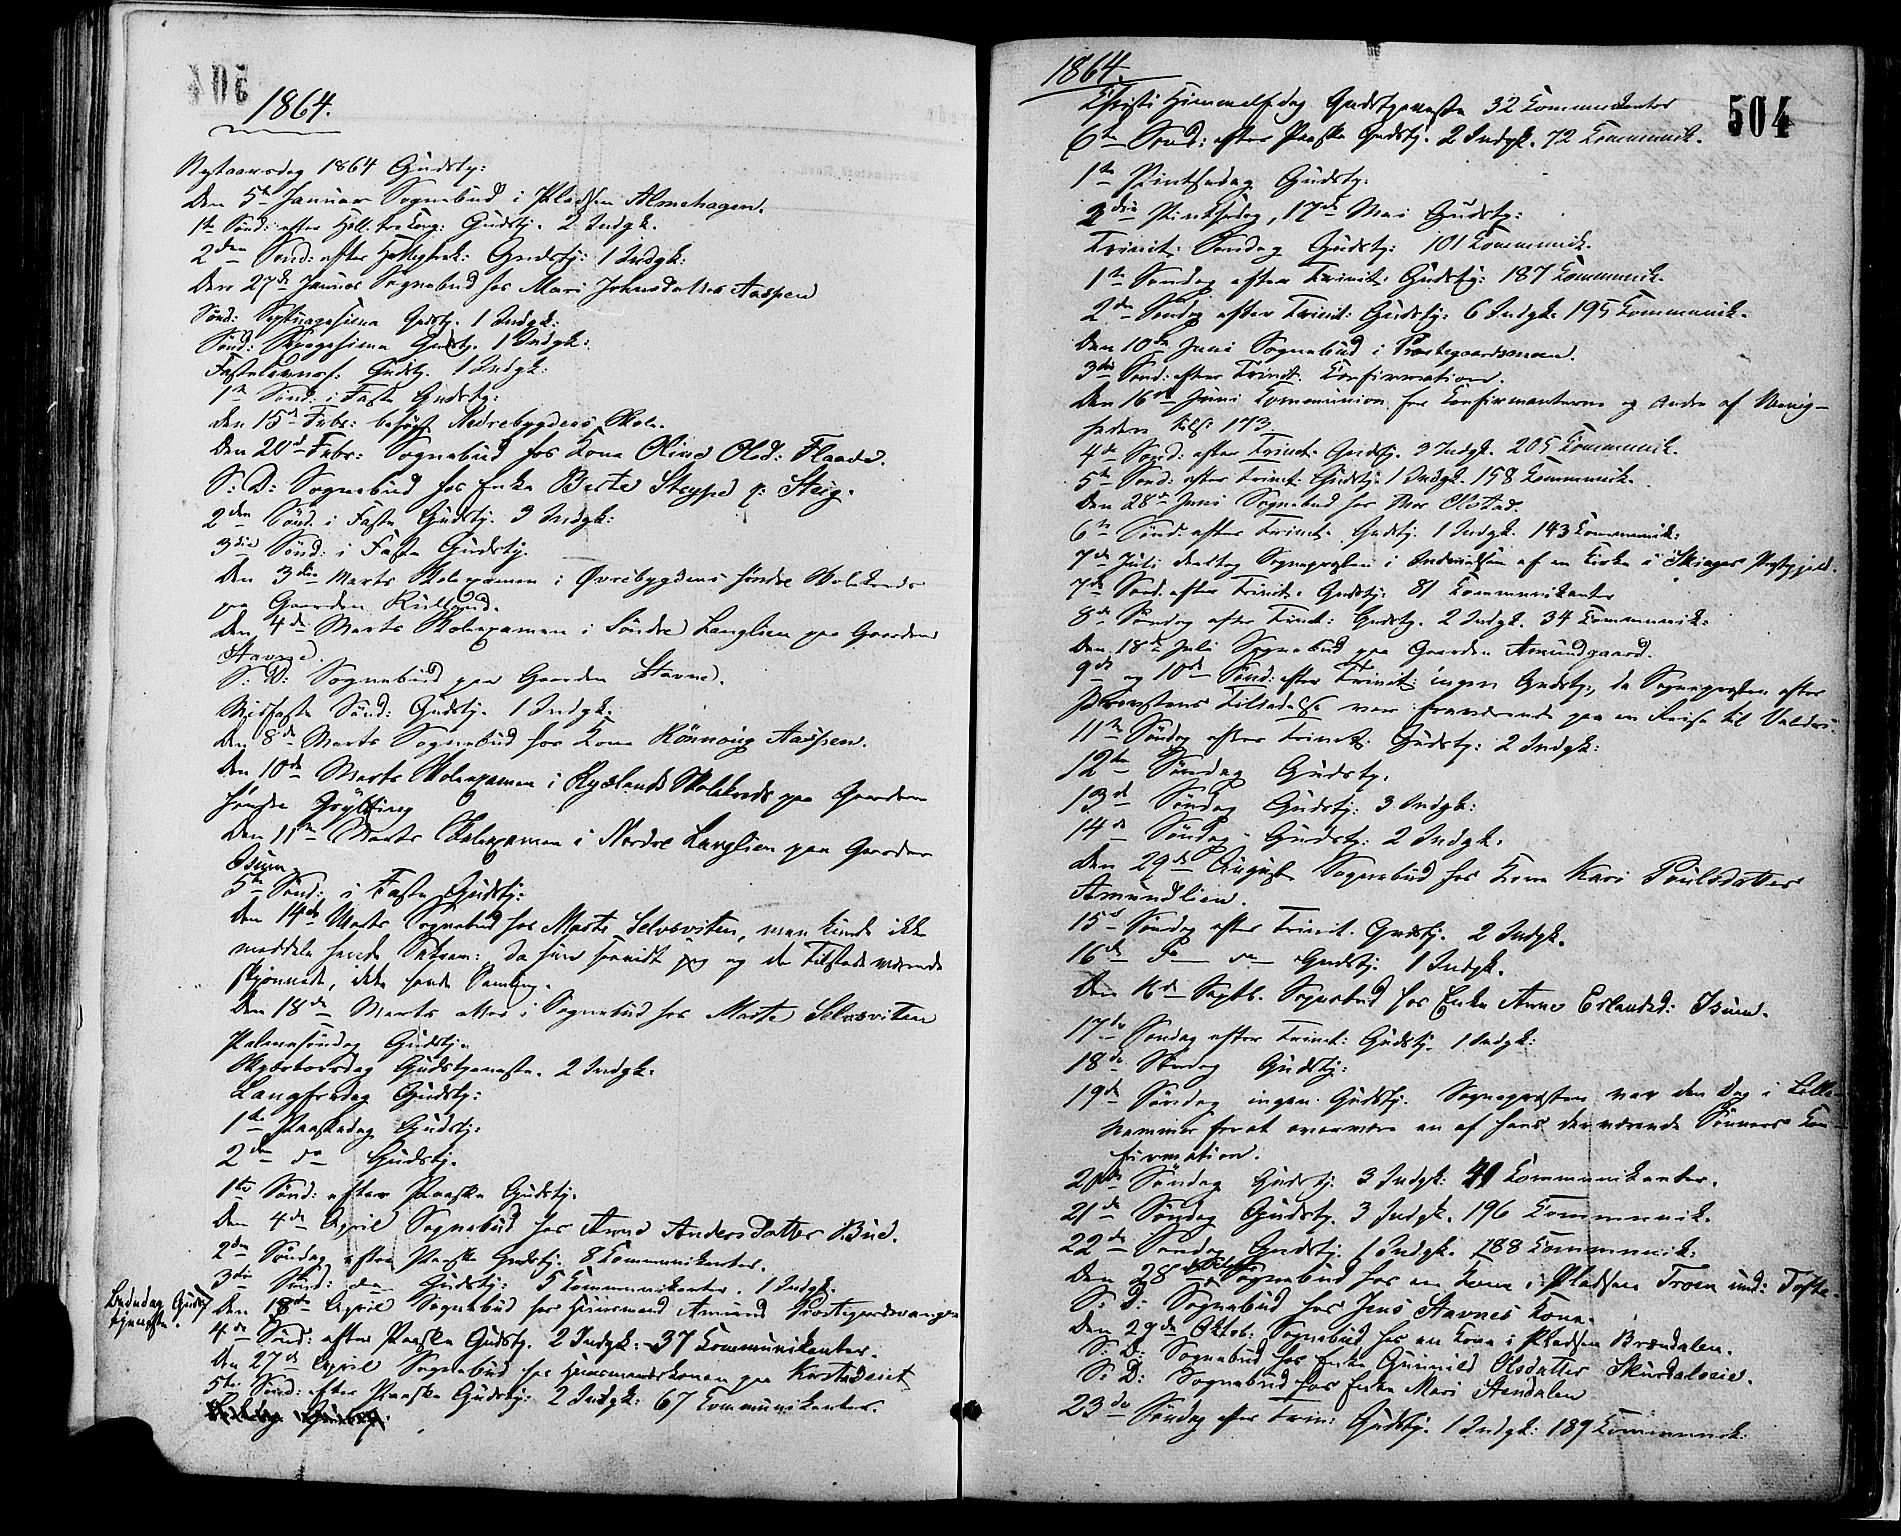 1864.
Nytaarsdag 1864 Gudstj:
Den 5te Januar Sognebud i Pladsen Almehagen.
1te Sønd: efter Hell. tre Kong: Gudstj. 2 Indgk.
2den Sønd: efter Gudstj: 1 Indgk:
Den 27de Januar Sognebud hos Mari Johnsdatter Aaspen
Sønd: Septuagesima Gudstj. 1 Indgk:
Sønd: Sexagesima Gudstj. 1 Indgk:
Fastelavnss: Gudstj. 1 Indgk:
1te Sønd: i Faste Gudstj:
Den 15de Febr: besøgt Nedrebygdens Skole.
Den 20de Febr: Sognebud hos Kone Oline Olsd: Flaade.
S: D: Sognebud hos Enke Berte p: Steig.
2den Sønd. i Faste Gudstj. 3 Indgk:
3die Sønd: i Faste Gudstj.
Den 3die Marts Skoleexamen i Øvrebygdens søndre Skolekreds
paa Gaarden
Den 4de Marts Skoleexamen i Søndre Langlien paa Gaarden
Stavne.
S: D: Sognebud paa Gaarden Stavne.
Midfaste Sønd: Gudstj. 1 Indgk.
Den 8de Marts Sognebud hos Kone Rønnoug Aaspen.
Den 10de Marts Skoleexamen i Skolekreds paa Gaarden
søndre Grytting
Den 11te Marts Skoleexamen i Nordre Langlien paa Gaarden
Isum.
5te Sønd: i Faste Gudstj:
Den 14de Marts Sognebud hos Marte Selvsviten, men kunde ikke
meddele hende Sakram: da hun saavidt jeg og de Tilstedeværende
skjønnede, ikke havde Samling.
Den 18de Marts atter i Sognebud hos Marte Selvsviten
Palmesøndag Gudstj.
Skjærtorsdag Gudstjeneste. 2 Indgk.
Langfredag Gudstj:
1te Paaskedag Gudstj:
2den do Gudstj.
1te Sønd: efter Paaske Gudstj.
Den 4de April Sognebud hos Anne Andersdatter Bue.
2den Søndag efter Paaske Gudstj. 8 Kommunikanter.
3die Sønd: do Gudstj: 5 Kommunikanter. 1 Indgk.
Bededag Gudst
tjeneste.
Den 18de April Sognebud hos Huusmand Amund Præstegardsvangen
4de Sønd: efter Paaske Gudstj. 2 Indgk: 37 Kommunikanter.
Den 27de April Sognebud hos Huusmandskonen paa
5te Sønd: efter Paaske Gudstj: 2 Indgk: 67 Kommunikanter.
504
1864.
Christi Himmelf.dag Gudstjeneste 32 Kommunikanter
6te Sønd: efter Paaske Gudstj. 2 Indgk. 72 Kommunik.
1te Pintsedag Gudstj.
2die Pintsedag, 17de Mai Gudstj:
Trinit: Søndag Gudstj: 101 Kommunik.
1te Søndag efter Trinit: Gudstj: 187 Kommunik.
2den Søndag efter Trinit: Gudstj: 6 Indgk. 195 Kommunik.
Den 10de Juni Sognebud i Præstegaardsmoen.
3die Sønd: efter Trinit: Konfirmation.
Den 16de Juni Kommunion for Konfirmanterne og Andre af Menig-
heden tils: 173
4de Sønd: efter Trinit. Gudstj. 2 Indgk. 205 Kommunik.
5te Sønd: efter Trinit: Gudstj. 1 Indgk. 158 Kommunik.
Den 28de Juni Sognebud hos Olstad.
6te Sønd: efter Trinit. Gudstj. 1 Indgk. 143 Kommunik:
7de Juli deeltog Sognepræsten i Indvielsen af en Kirke i Skiager Præstegjeld.
7de Sønd: efter Trinit. Gudstj. 81 Kommunikanter
8de Søndag efter Trinit: Gudstj. 2 Indgk. 34 Kommunik:
Den 18de Juli Sognebud paa Gaarden Amundgaard.
9de og 10de Sønd: efter Trinit: ingen Gudstj., da Sognepræsten efter
Provstens Tilladelse var fraværende paa en Reise til Valders.
11te Søndag efter Trinit: Gudstj: 2 Indgk:
12te Søndag Gudstj.
13de Søndag Gudstj: 3 Indgk:
14de Søndag Gudstj: 2 Indgk.
Den 29de August Sognebud hos Kone Kari Poulsdatter
Amundlien.
15de Søndag efter Trinit. Gudstj. 2 Indgk.
16de do do Gudstj. 1 Indgk.
Den 16de Septb. Sognebud hos Enke Anne Erlandsd: Isum.
17de Søndag efter Trinit: Gudstj. 1 Indgk:
18de Søndag Gudstj:
19de Søndag ingen Gudstj. Sognepræsten var den Dag i Lille-
hammer for at overvære en af hans derværende Sønners Kon-
firmation.
20de Søndag Gudstj. 3 Indgk: 49 Kommunikanter.
21de Søndag Gudstj. 3 Indgk. 196 Kommunik.
22de Søndag Gudstj. 1 Indgk. 188 Kommunik:
Den 28de Oktob Sognebud hos en Kone i Pladsen Troen und: Tofte.
S: D: Sognebud hos Jens Stavnes Kone.
Den 29de Oktob: Sognebud hos en Kone i Pladsen Brændalen.
S: D: Sognebud hos Enke Gunnild Olsdatter
S: D: Sognebud hos Enke Mari Stendalen
23de Søndag efter Trin: Gudstj. 1 Indgk: 189 Kommunik: